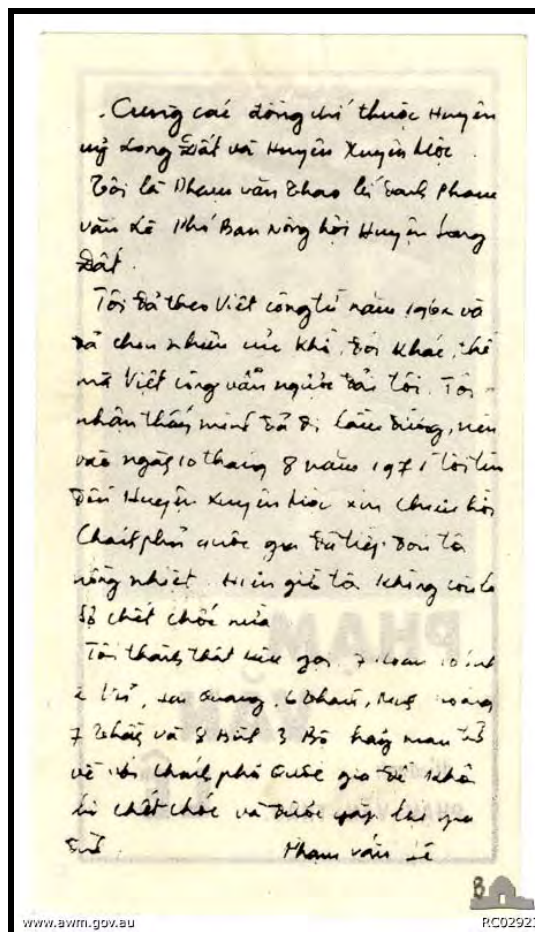 . Cùng các đồng chí thuộc Huyện
uỷ Long Đất và Huyện Xuyên Mộc.
Tôi là Phạm văn Thao bí danh Phạm
văn Lê Phó Ban nông hội Huyện Long
Đất.
Tôi đã theo Việt cộng từ năm 196 và
đã chịu nhiều cực khổ, đói khác, thế
mà Việt cộng vẫn ngược đãi tôi. Tôi
nhận thấy mình đã đi lầm đường, nên
vào ngày 10 tháng 8 năm 1971 tôi
đến Huyện Xuyên Mộc xin chiêu hồi
Chánh phủ quốc gia đã tiếp đón tôi
nồng nhiệt. Hiện giờ tôi không còn lo
sợ chết chóc nữa
Tôi thành thật kêu gọi. 7
Quang, 6
7 và 8 3 Bô hãy mau
về với chánh phủ Quốc gia để khỏi
bị chết chóc và được gặp lại gia
Phạm văn Lê
PHẠM
VĂN
8
www.awm.gov.au RC02921